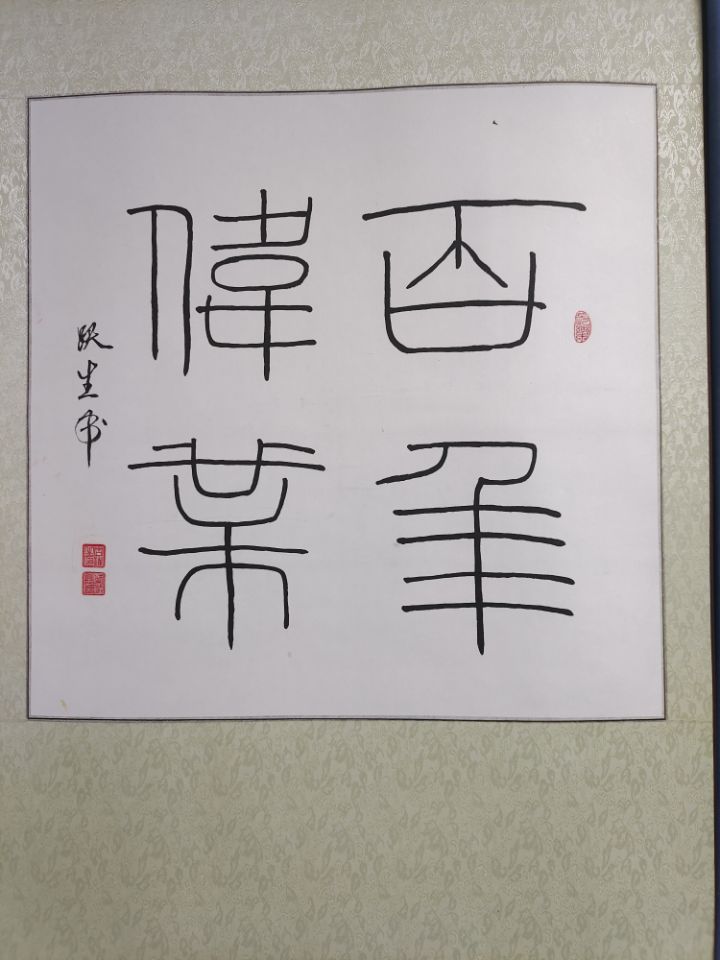 百年
偉業
跃生书